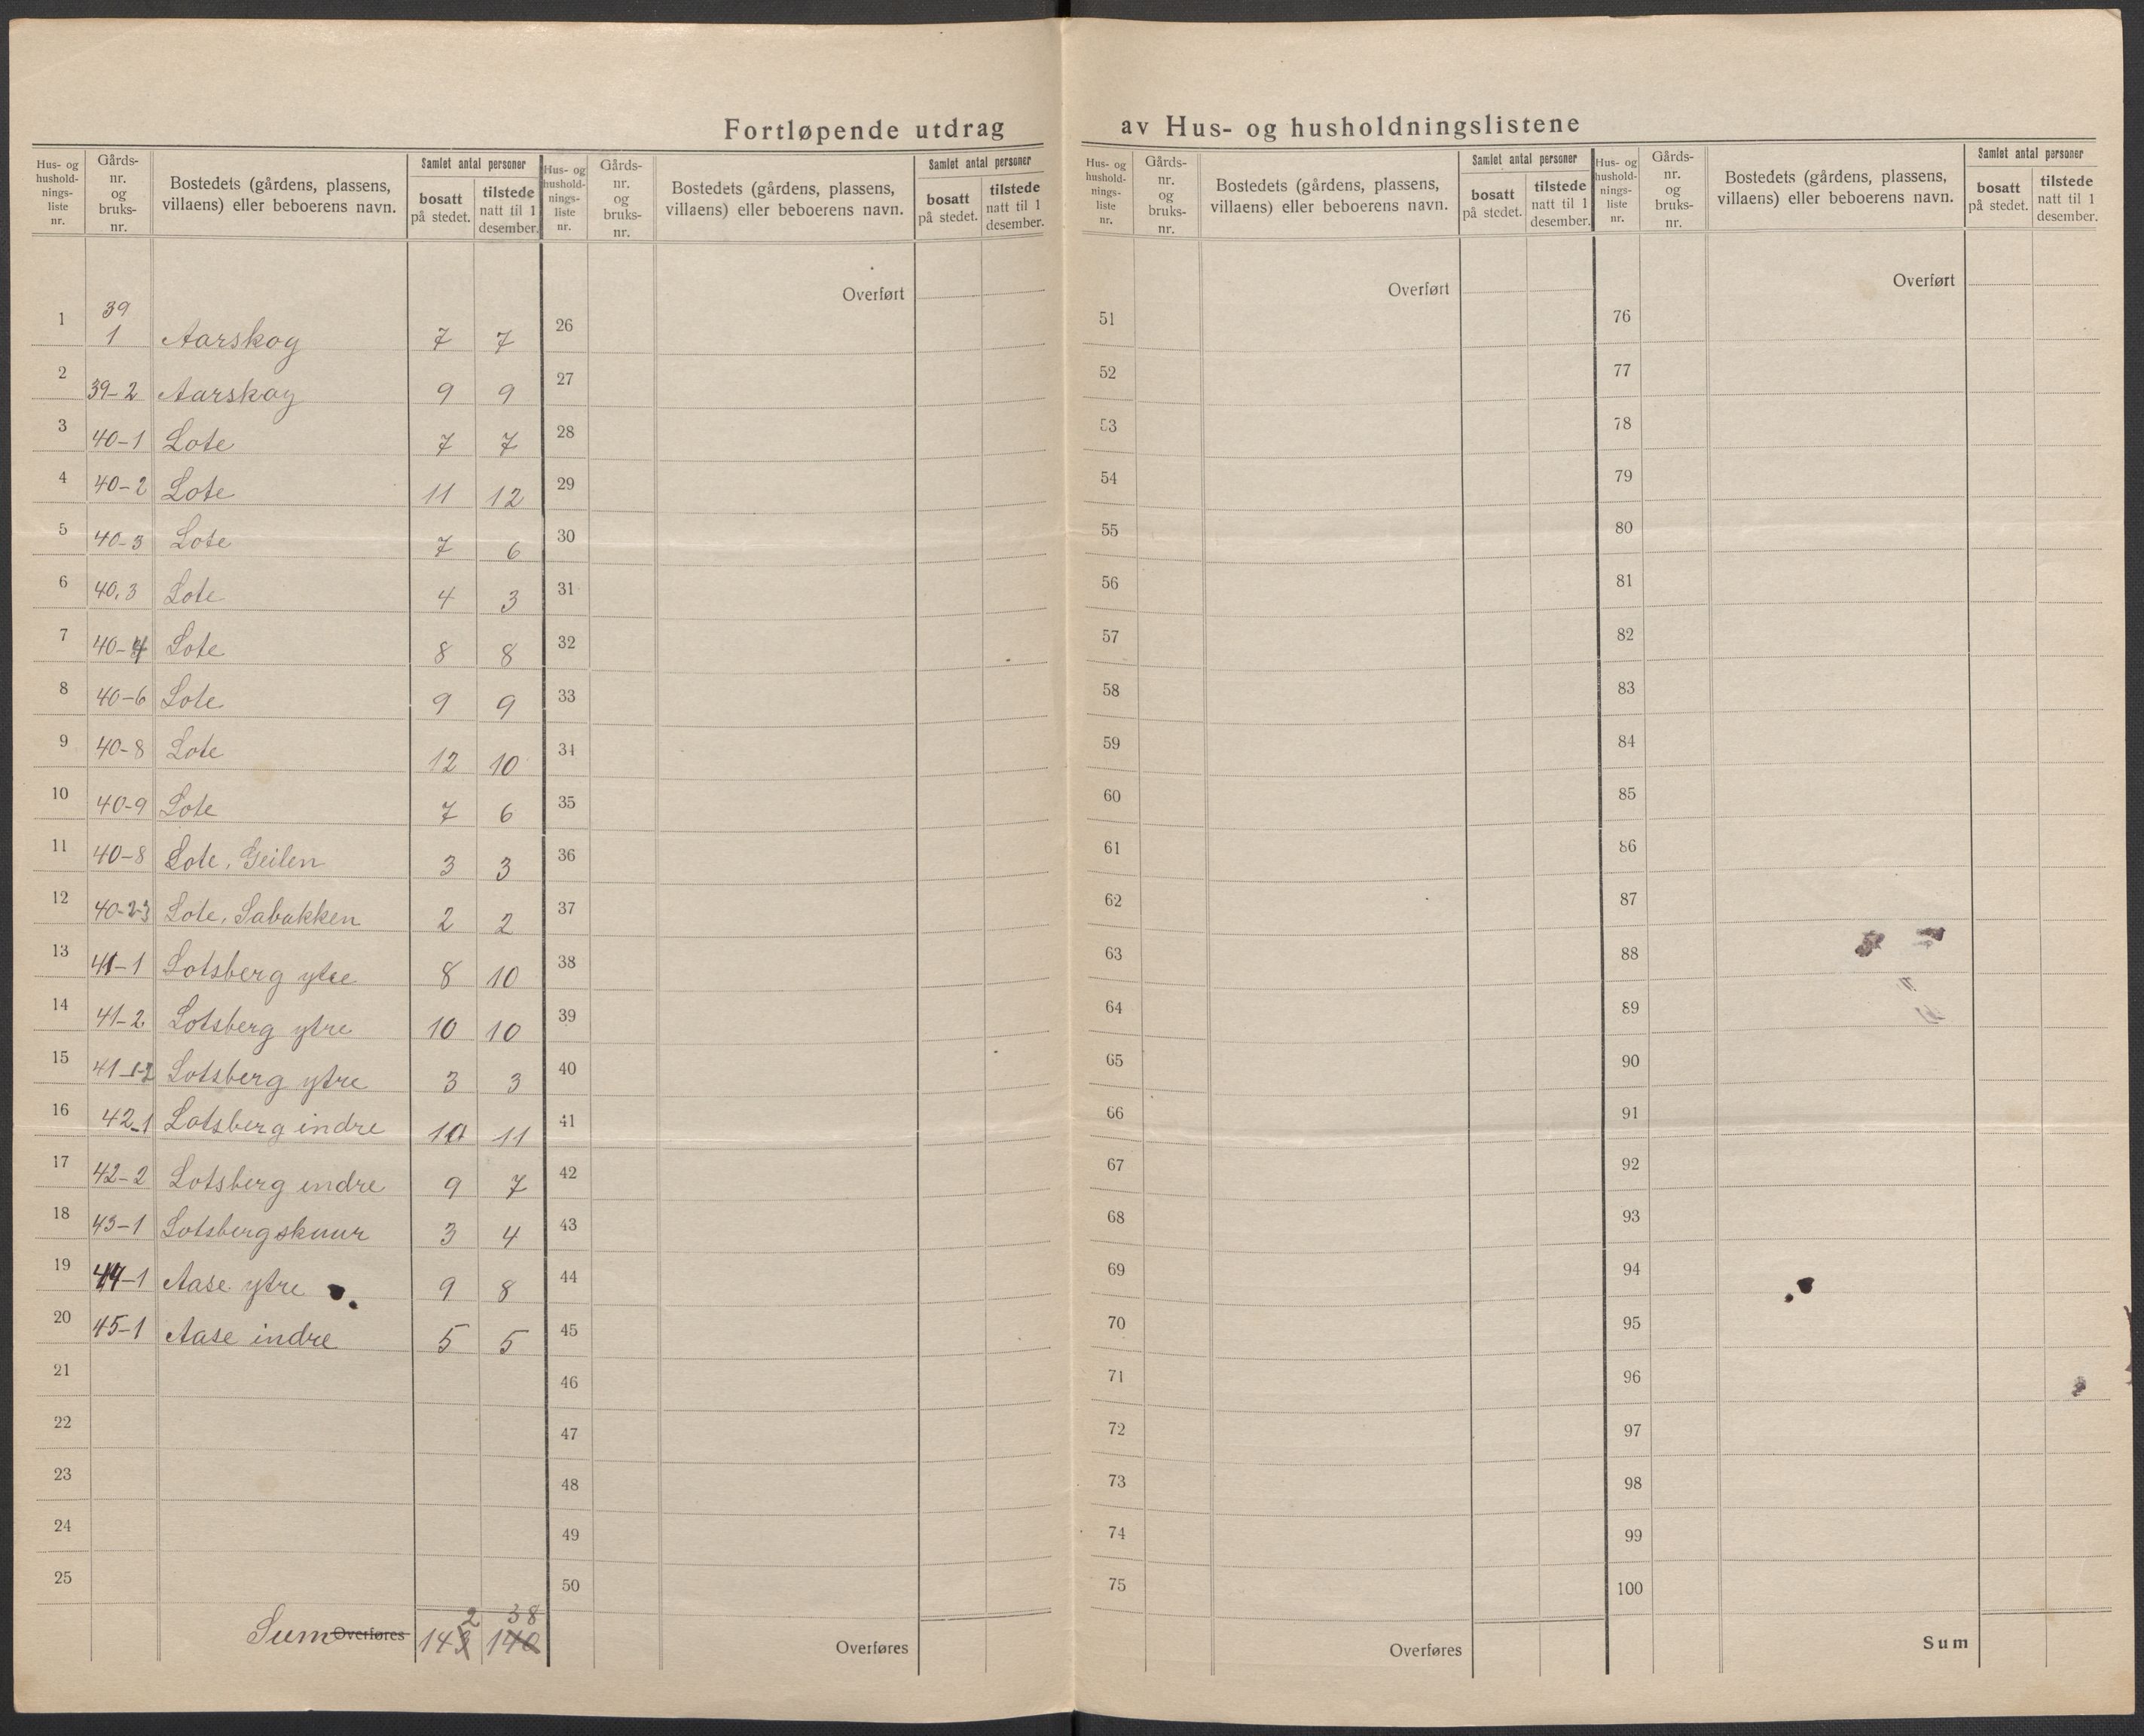 Fortløpende utdrag av Hus- og husholdningslistene
Hus- og hushold-nings-liste nr. Gårds-nr. og bruks-nr. Bostedets (gårdens, plassens, villaens) eller beboerens navn. Samlet antal personer bosatt på stedet. tilstede natt til 1 desember.
Hus- og hushold-nings-liste nr. Gårds-nr. og bruks-nr. Bostedets (gårdens, plassens, villaens) eller beboerens navn. Samlet antal personer bosatt på stedet. tilstede natt til 1 desember.
Hus- og hushold-nings-liste nr. Gårds-nr. og bruks-nr. Bostedets (gårdens, plassens, villaens) eller beboerens navn. Samlet antal personer bosatt på stedet. tilstede natt til 1 desember.
Hus- og hushold-nings-liste nr. Gårds-nr. og bruks-nr. Bostedets (gårdens, plassens, villaens) eller beboerens navn. Samlet antal personer bosatt på stedet. tilstede natt til 1 desember.
1 39 1 Aarskog 7 7
2 39-2 Aarskog 9 9
3 40-1 Lote 7 7
4 40-2 Lote 11 12
5 40-3 Lote 7 6
6 40.3 Lote 4 3
7 40-4 Lote 8 8
8 40-6 Lote 9 9
9 40-8 Lote 12 10
10 40-9 Lote 7 6
11 40-8 Lote, Geilen 3 3
12 40-2-3 Lote, Labakken 2 2
13 41-1 Lotsberg ytre 8 10
14 41-2 Lotsberg ytre 10 10
15 41-1-2 Lotsberg ytre 3 3
16 42-1 Lotsberg indre 10 11
17 42-2 Lotsberg indre 9 7
18 43-1 Lotsbergskuur 3 4
19 44-1 Aase ytre 9 8
20 45-1 Aase indre 5 5
21
22
23
24
25
2 38
Sum Overføres 143 140
Overført
26
27
28
29
30
31
32
33
34
35
36
37
38
39
40
41
42
43
44
45
46
47
48
49
50
Overføres
Overført
51
52
53
54
55
56
57
58
59
60
61
62
63
64
65
66
67
68
69
70
71
72
73
74
75
Overføres
Overført
76
77
78
79
80
81
82
83
84
85
86
87
88
89
90
91
92
93
94
95
96
97
98
99
100
Sum